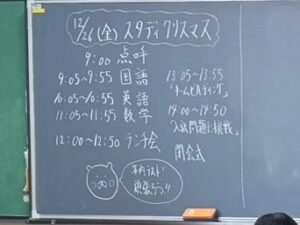 12/26(金) スタディクリスマス
9:00 点呼
9:05~9:55 国語
10:05~10:55 英語
11:05~11:55 数学
12:00~12:50 ランチ会
13:05~13:55
「チームビルディング」
14:00~14:50
「入試問題に挑戦」
閉会式
頑張ろう!!